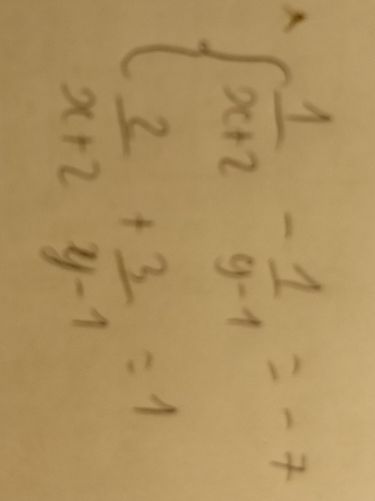 1/(x+2) - 1/(y-1) = -7
2/(x+2) + 3/(y-1) = 1